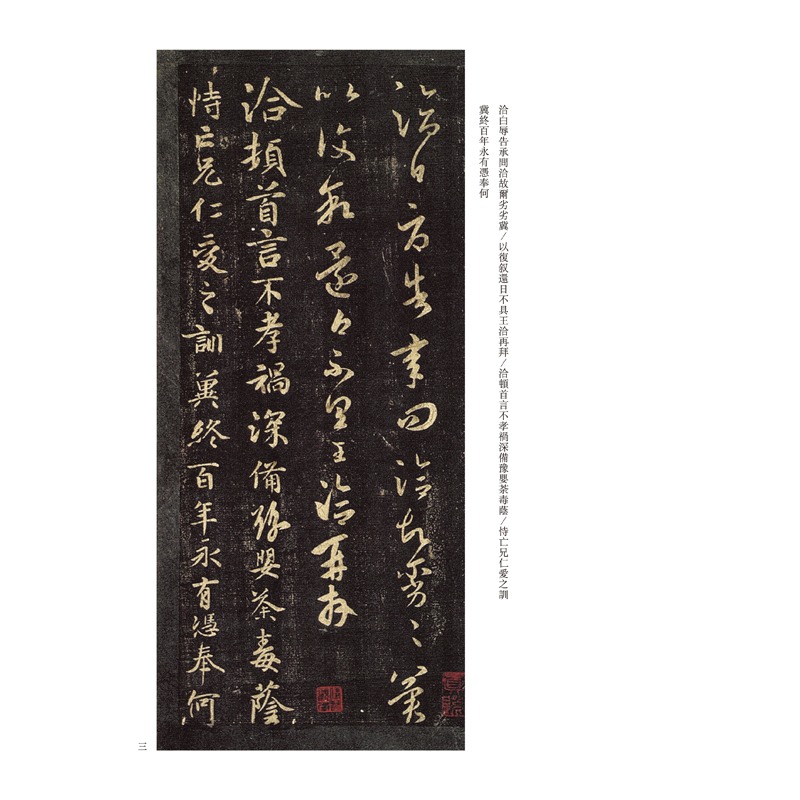 洽白辱告承問洽故爾劣劣冀/以復叙還日不具王洽再拜/洽頓首言不孝禍深備豫嬰荼毒蔭/恃亡兄仁愛之訓
冀終百年永有憑奉何
洽白辱告承問洽故爾劣〻冀
以復叙還日不具王洽再拜
洽頓首言不孝禍深備豫嬰荼毒蔭
恃亡兄仁愛之訓冀終百年永有憑奉何
三